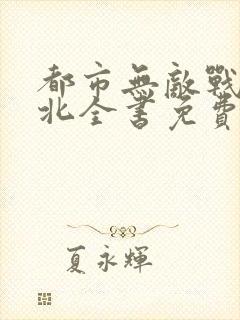 都市無敵戰
北全書免費
夏永輝